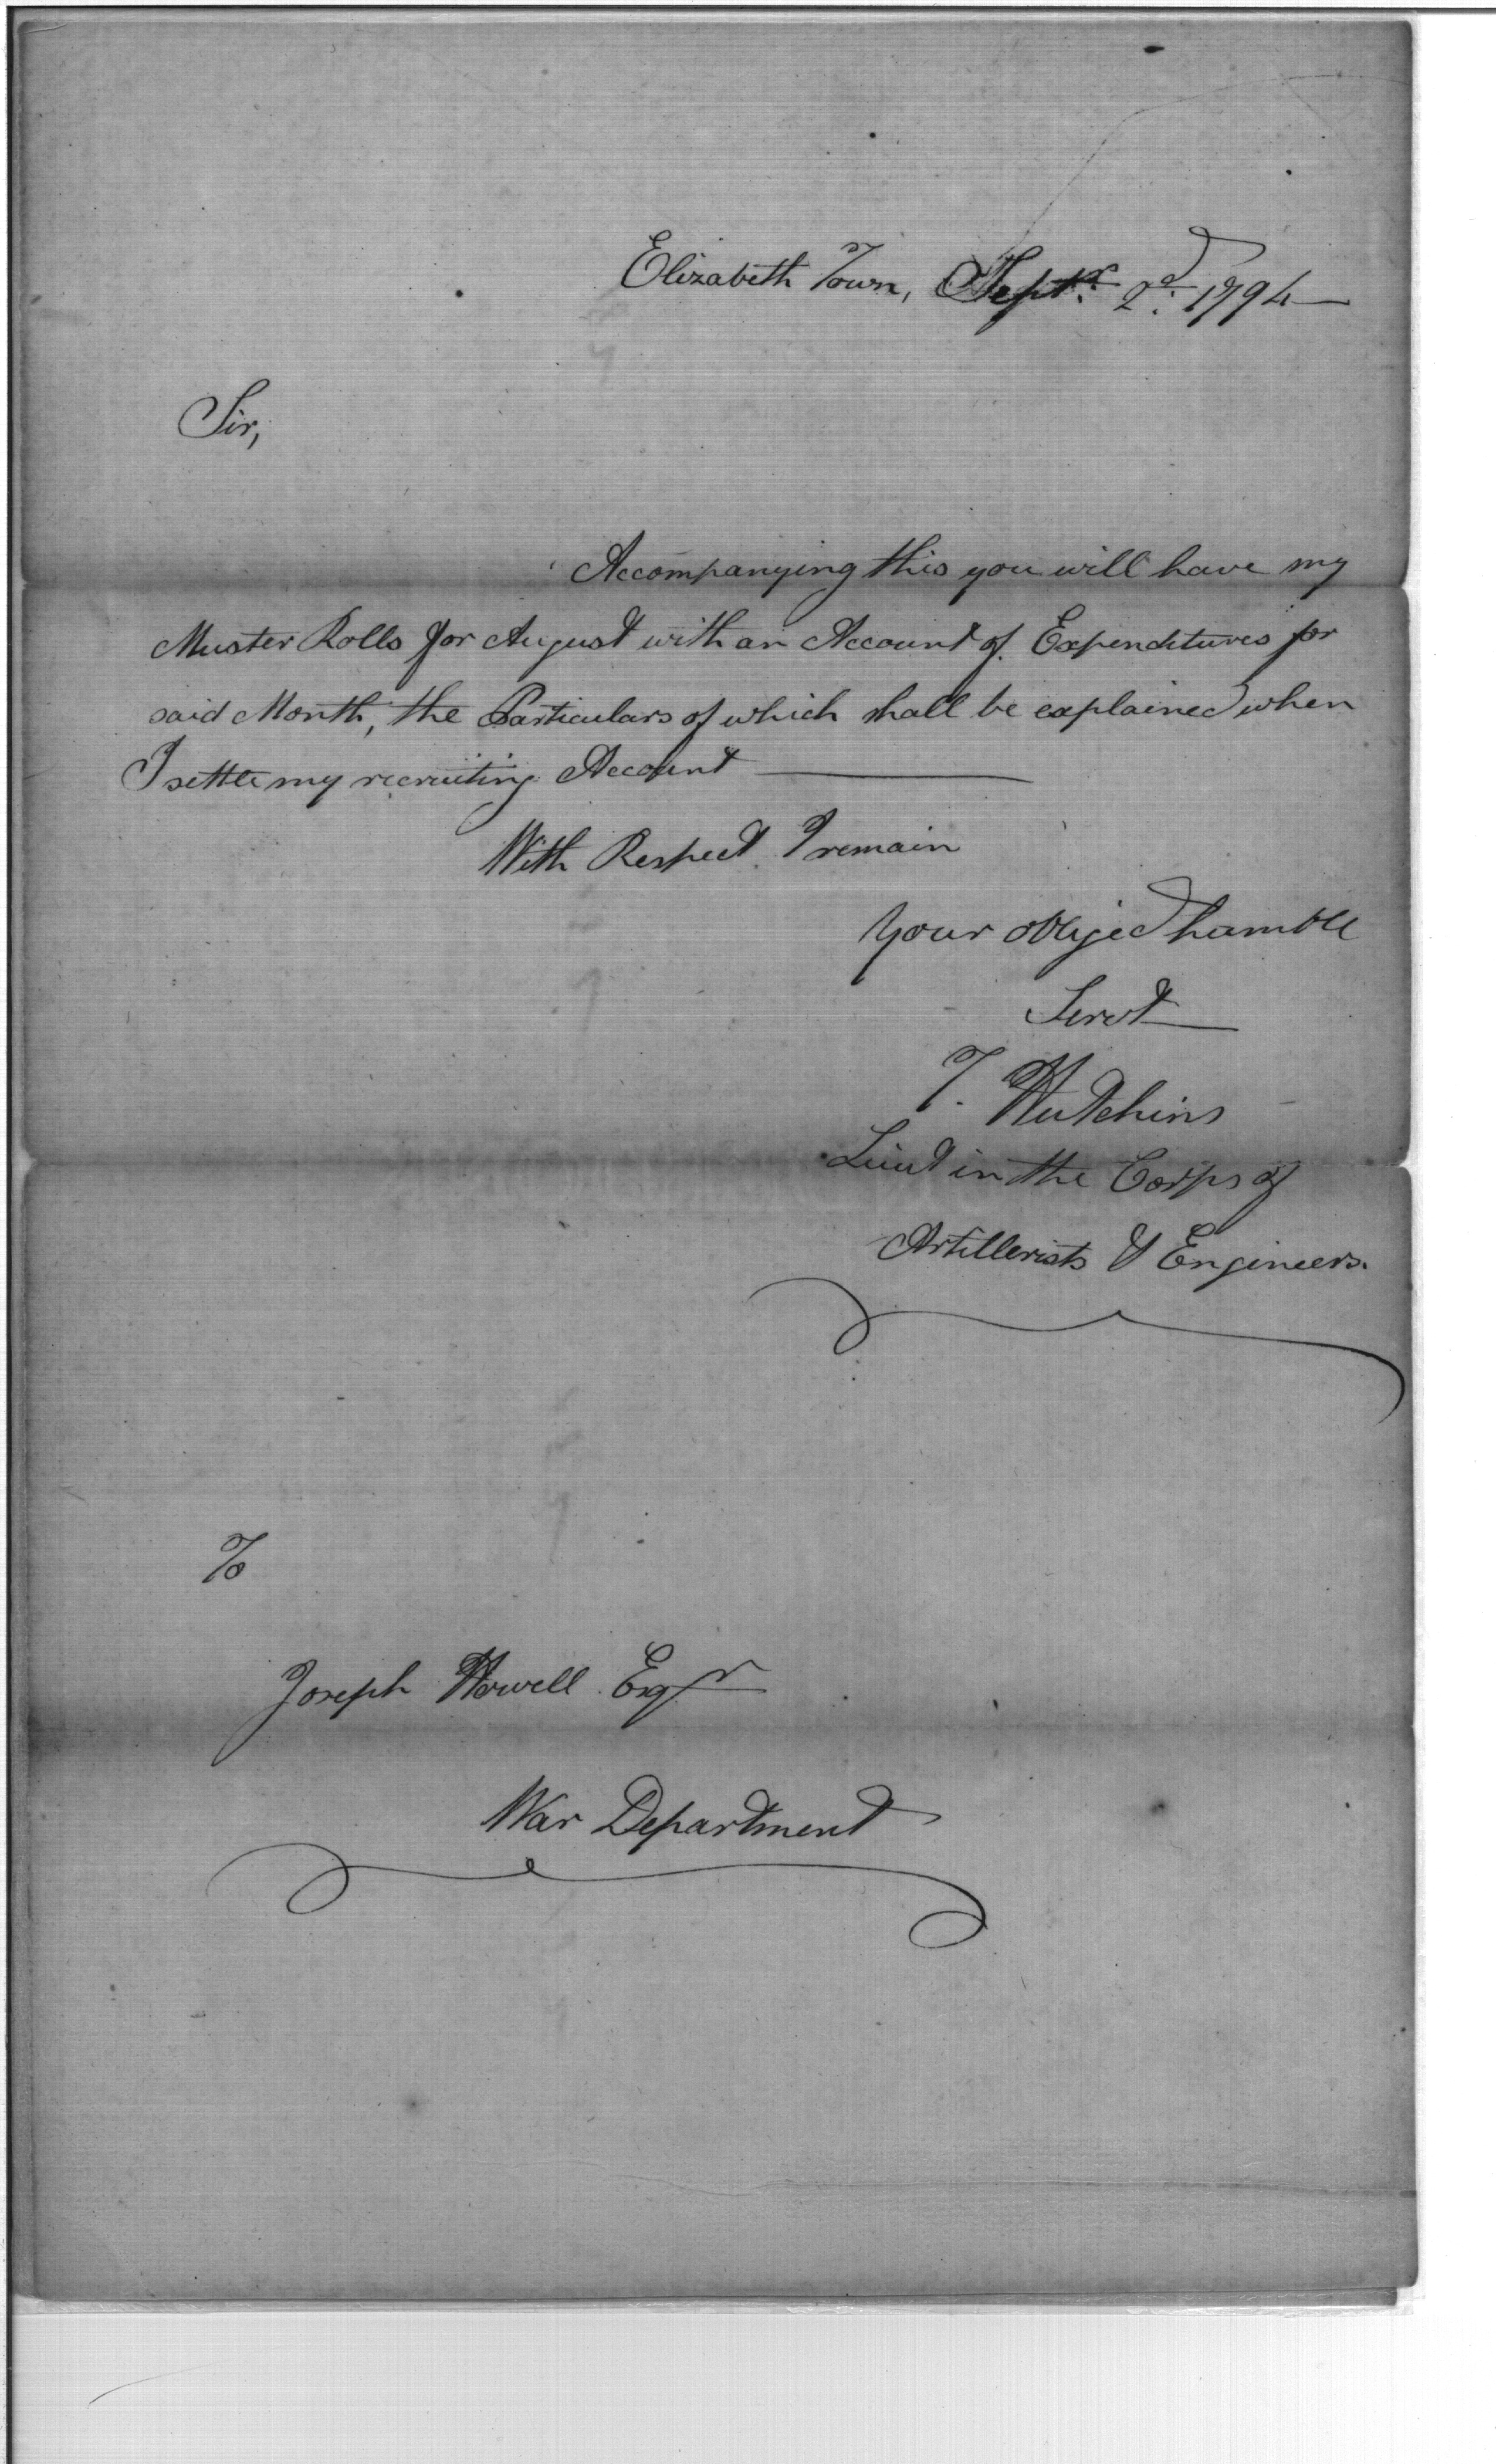 Elizabeth Town, Septr. 2d. 1794
Sir,
Accompanying this you will have my
Muster Rolls for August with an Account of Expenditures for
said Month, the Particulars of which shall be explained when
I settle my recruiting Account
With Respect I remain
Your obliged humble
Servt
T. Hutchins
Lieut in the Corps of
Artillerists & Engineers.
To
Joseph Howell Esqr
War Department